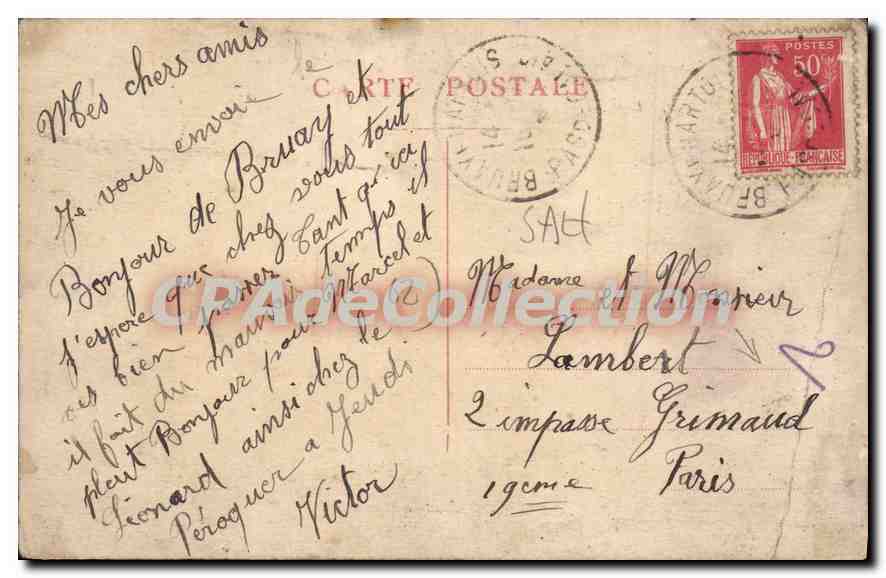 CARTE POSTALE
Mes chers amis
Je vous envoie le
Bonjour de Bruay et
j'espère que chez vous tout
ces bien passez tant qu' ici
il fait du mauvais temps il
pleut Bonjour pour Marcel et
Léonard ainsi chez le
Péroquer a Jeudi
Victor
BRUAY
POSTES
50
REPUBLIQUE FRANÇAISE
SAH
Madame et Monsieur
Lambert
2 impasse Grimaud
19eme Paris
CPAdeCollection